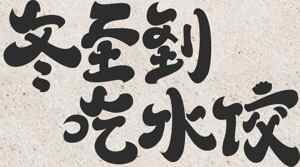 冬至到
吃水饺